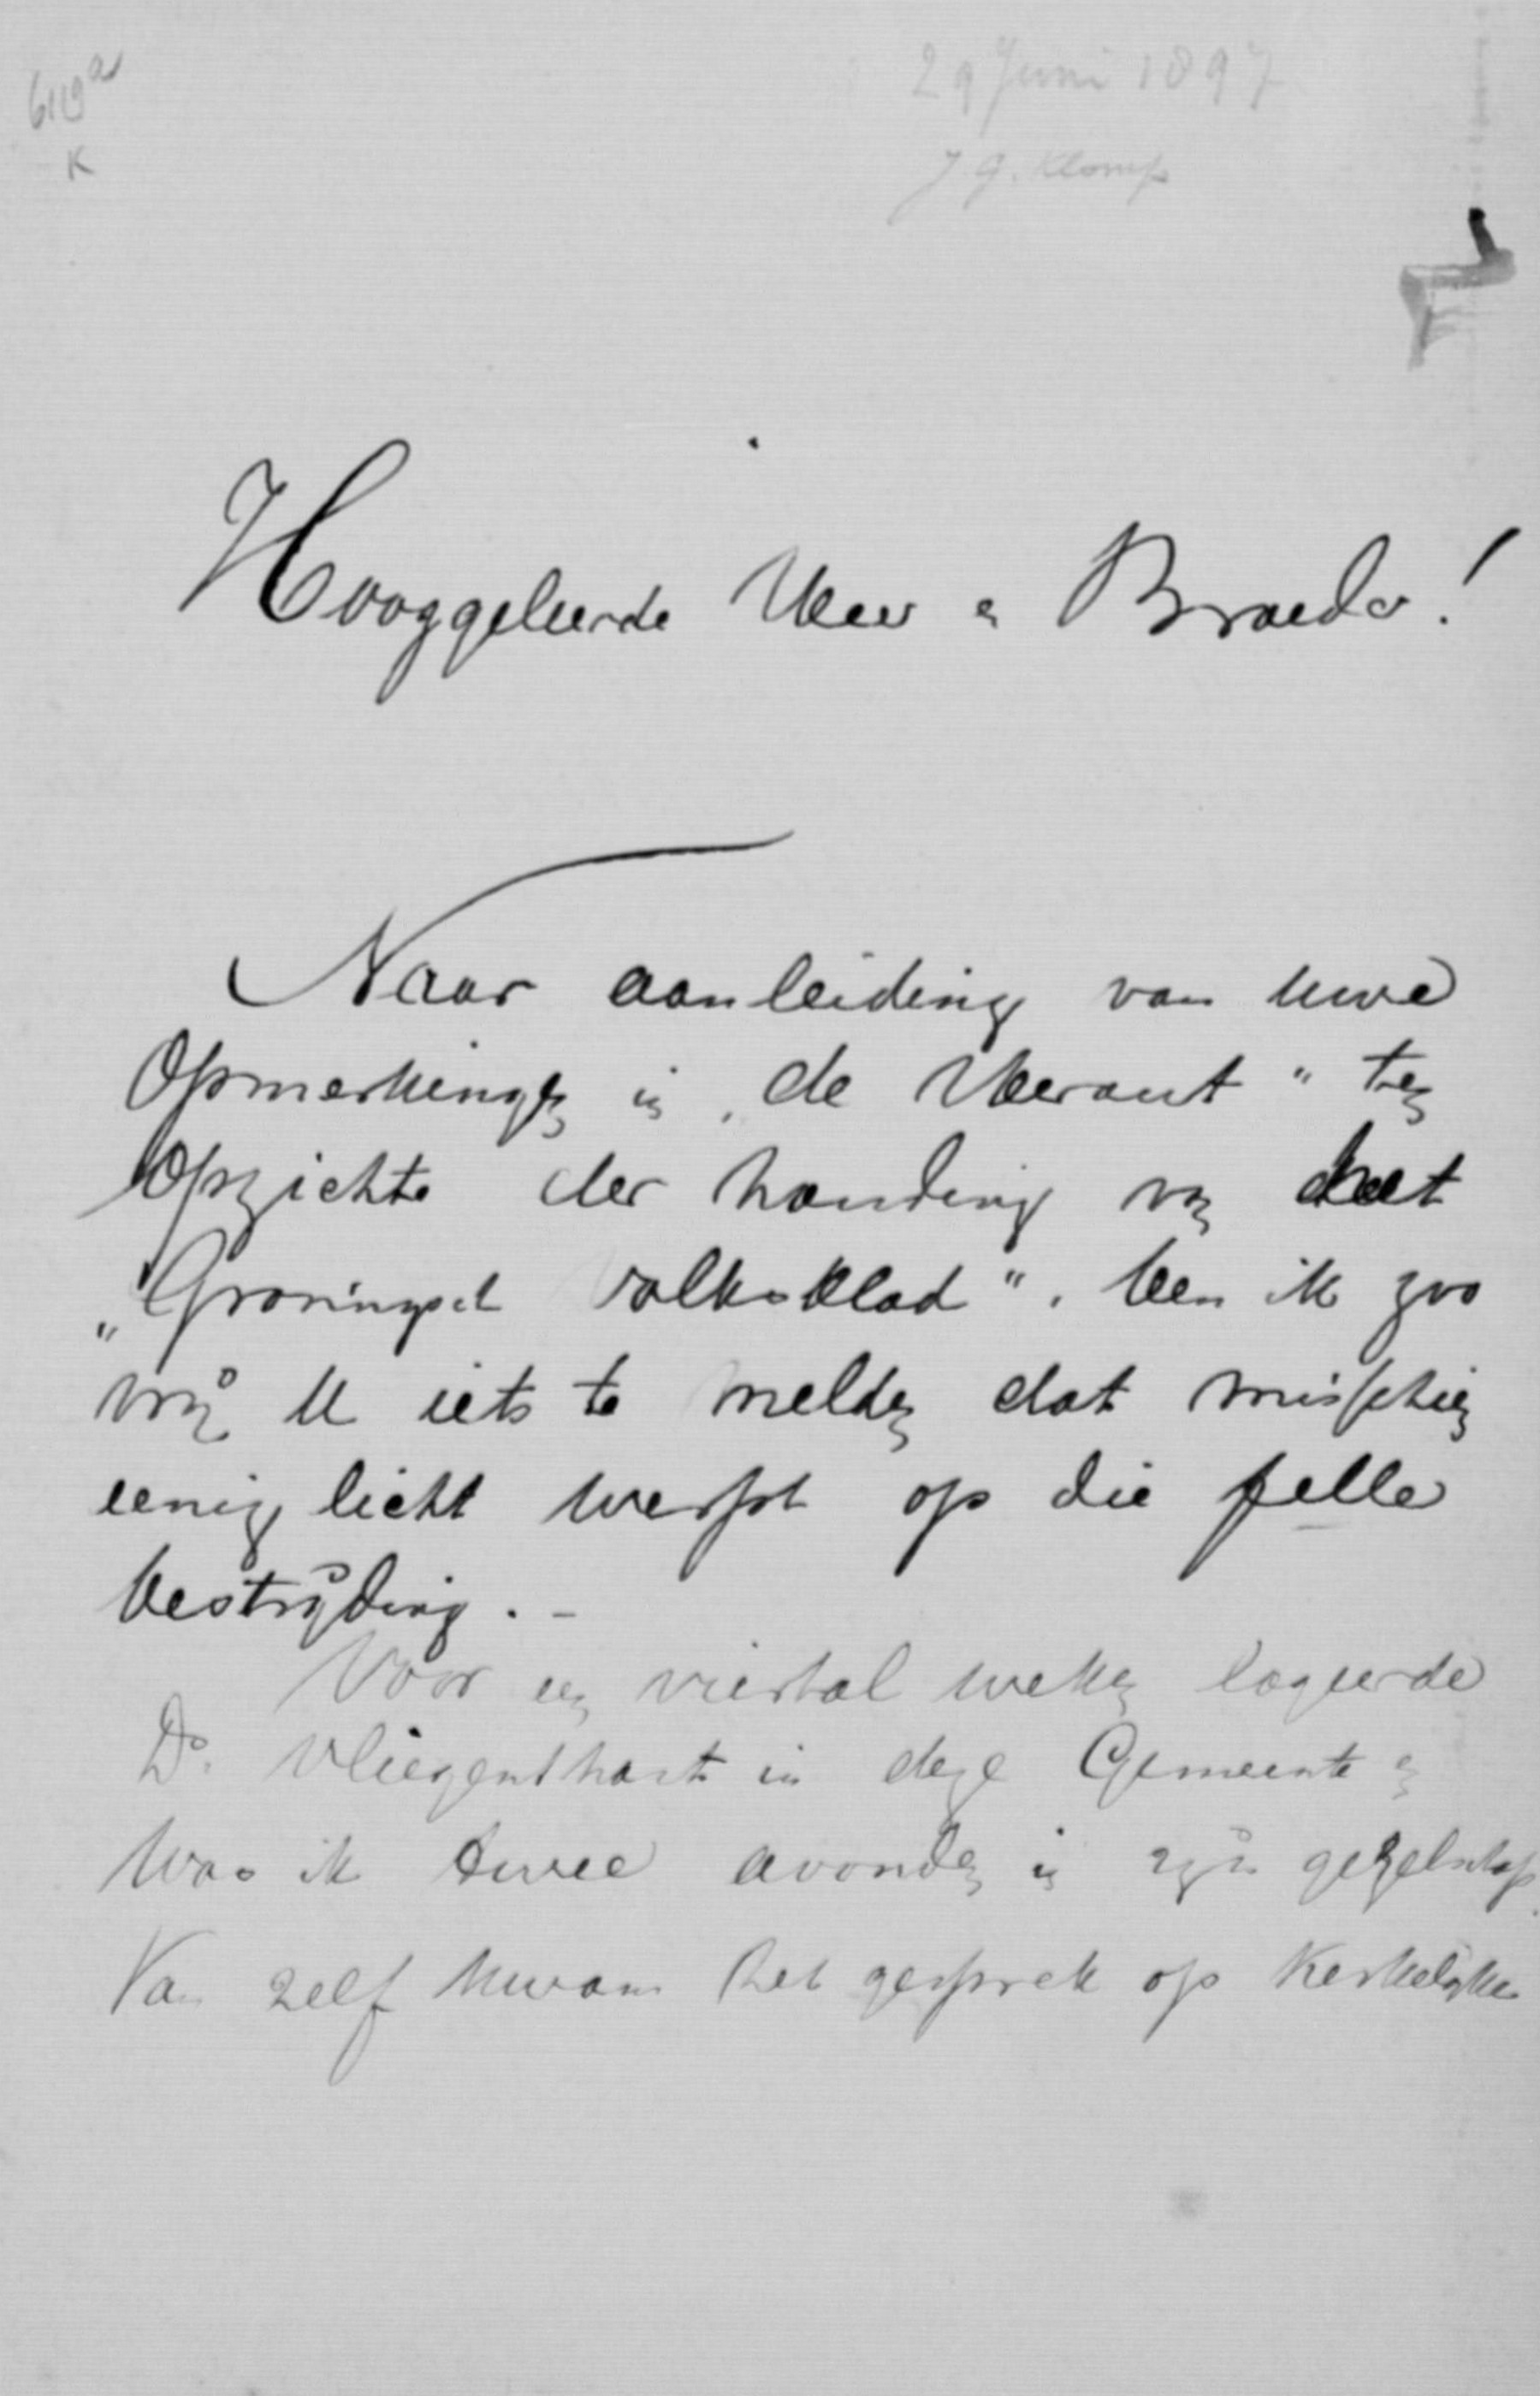 6119a
K
29 Juni 1897
J G. Klomp
Hooggeleerde Heer en Broeder!
Naar aanleiding van Uwe
Opmerkingen in „de Heraut" ten
Opzichte der houding van het
„Groningsch Volksblad", ben ik zoo
vrij U iets te melden dat misschien
eenig licht werpt op die felle
bestrijding. -
Voor een viertal weken logeerde
Ds. Vliegenthart in deze Gemeente en
was ik twee avonden in zijn gezelschap.
Van zelf kwam het gesprek op Kerkelijke